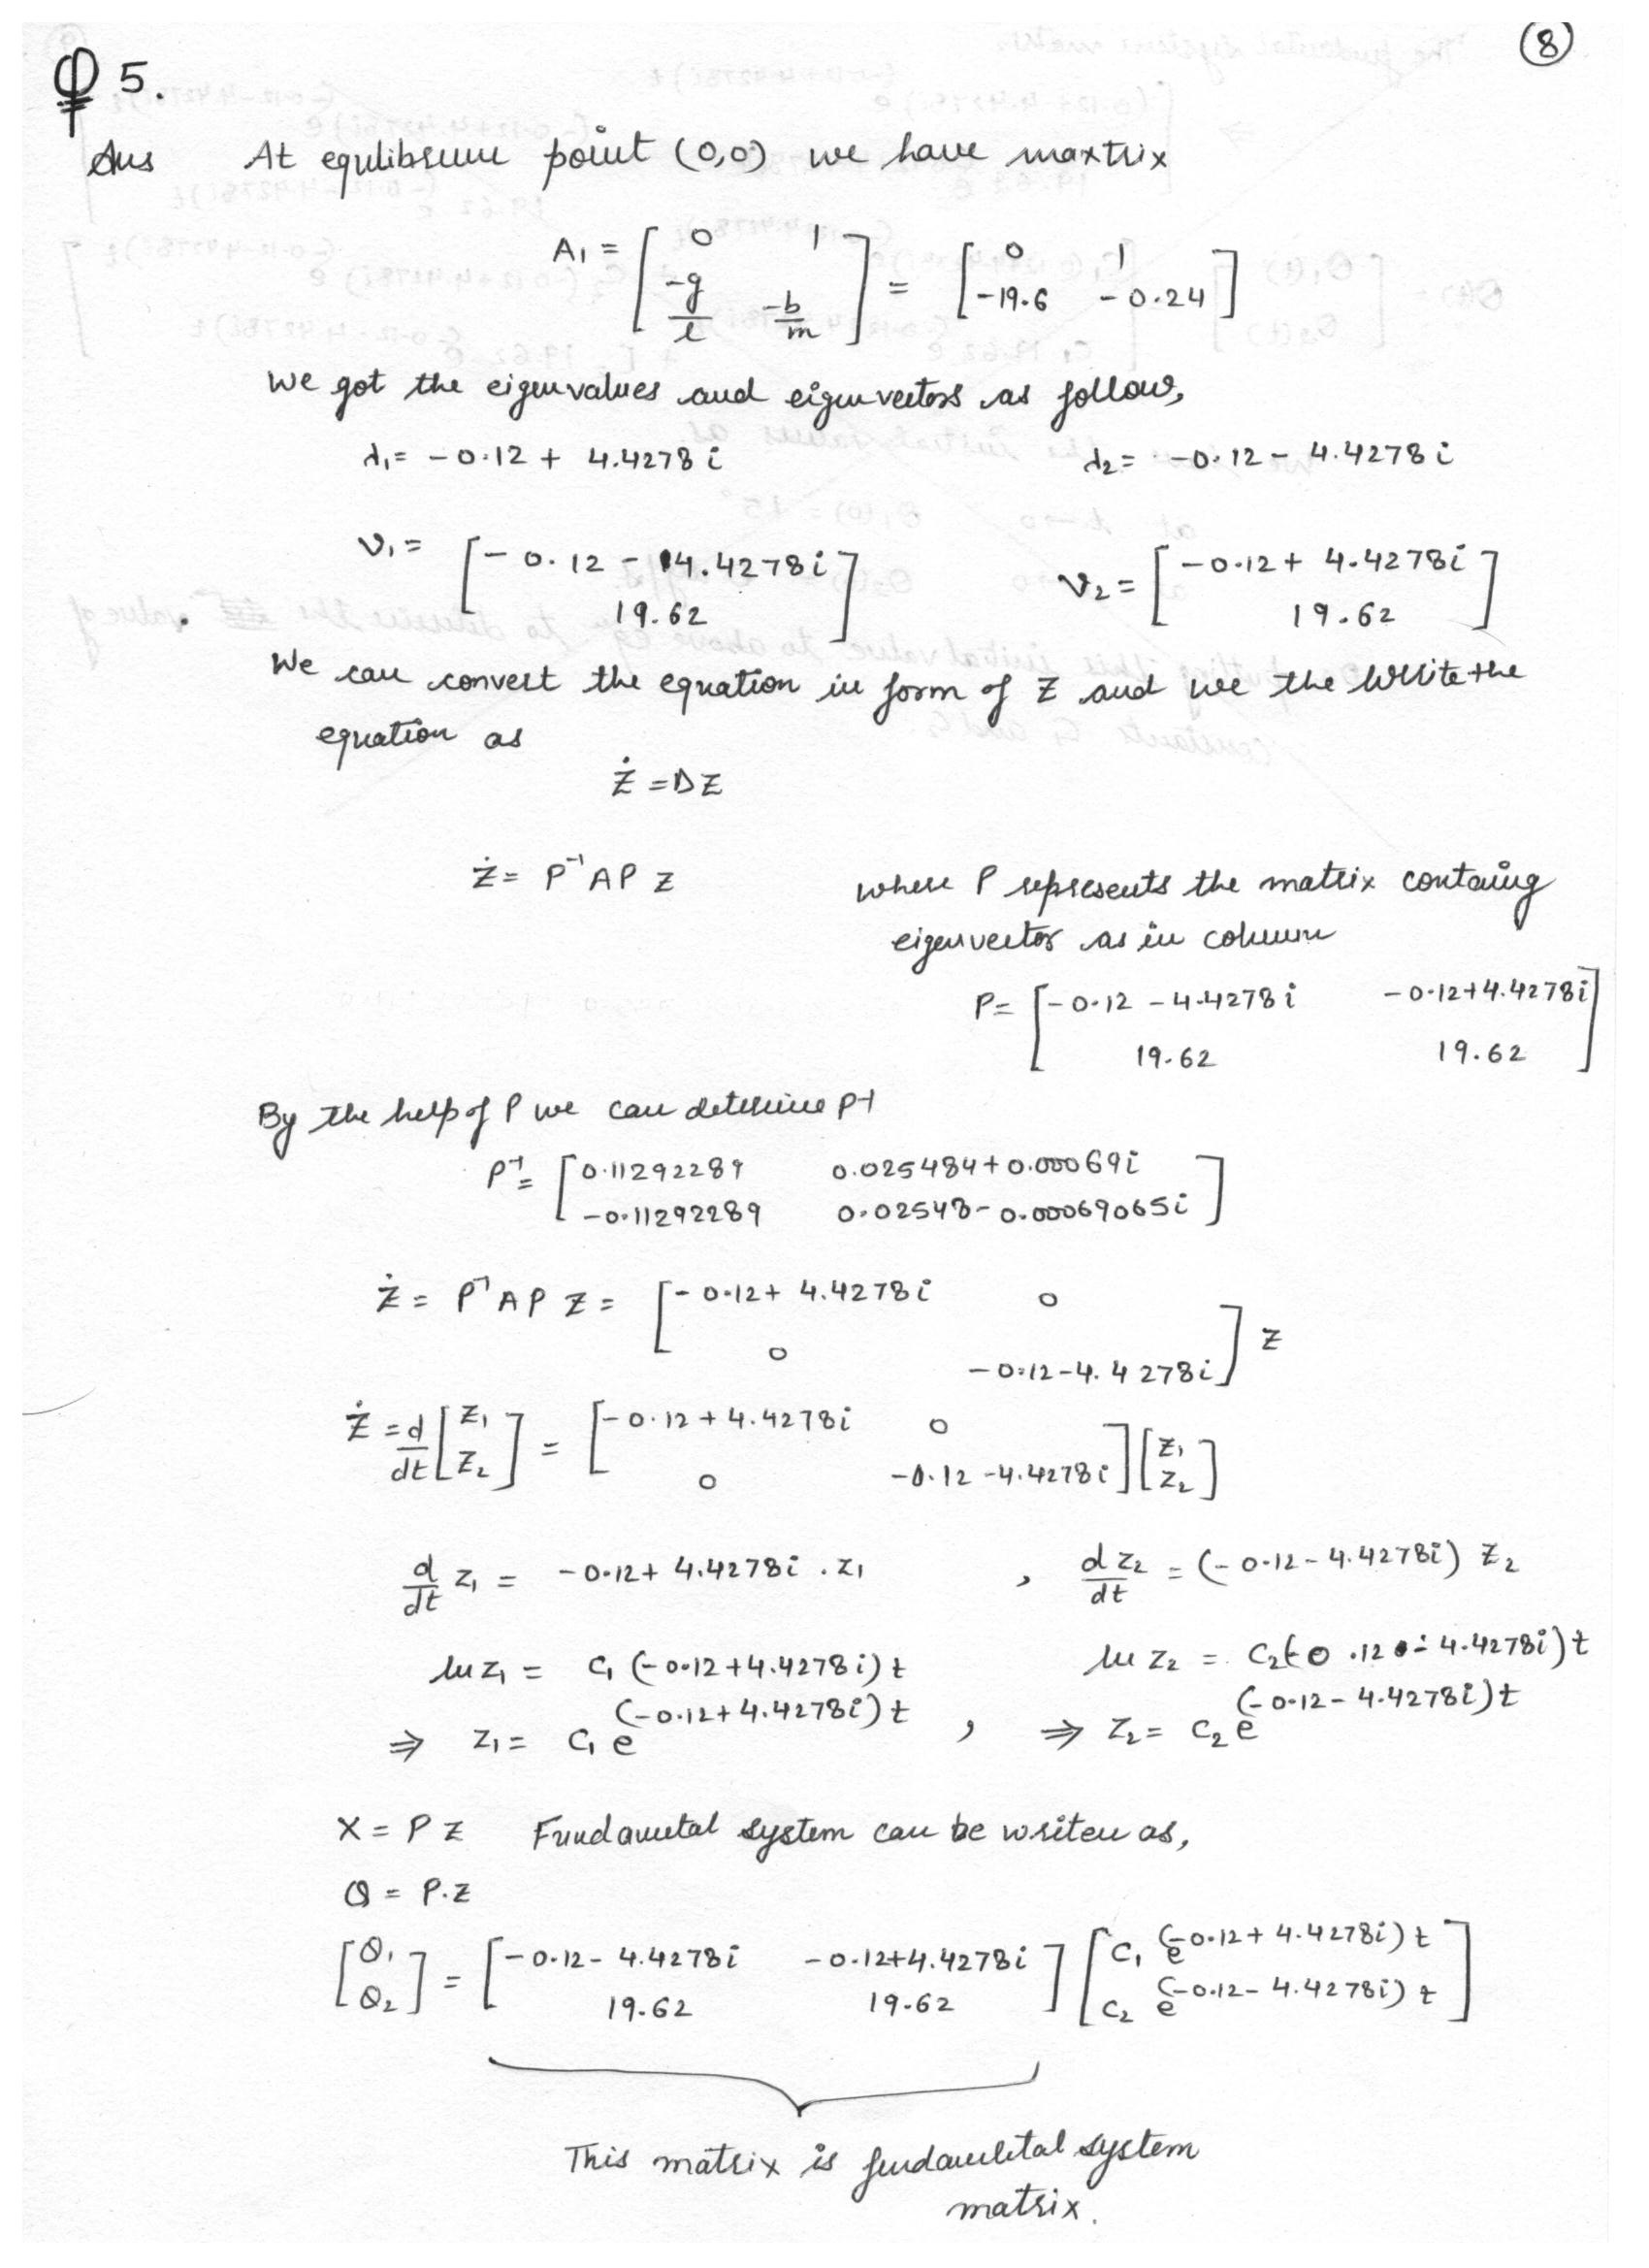 8
Q 5.
Ans At equlibrium point (0,0) we have maxtrix
A₁ = [ 0 1 ; -g/l -b/m ] = [ 0 1 ; -19.6 -0.24 ]
We got the eigenvalues and eigenvectors as follow,
λ₁ = -0.12 + 4.4278 i λ₂ = -0.12 - 4.4278 i
v₁ = [ -0.12 - 4.4278i ; 19.62 ] v₂ = [ -0.12 + 4.4278i ; 19.62 ]
We can convert the equation in form of Z and we the write the
equation as
Ż = DZ
Ż = P⁻¹AP Z where P represents the matrix containg
eigenvector as in column
P = [ -0.12 - 4.4278 i -0.12+4.4278i ; 19.62 19.62 ]
By the help of P we can determine P⁻¹
P⁻¹ = [ 0.11292289 0.025484+0.00069i ; -0.11292289 0.02548-0.00069065i ]
Ż = P⁻¹AP Z = [ -0.12+ 4.4278i 0 ; 0 -0.12-4.4278i ] Z
Ż = d/dt [ Z₁ ; Z₂ ] = [ -0.12+4.4278i 0 ; 0 -0.12-4.4278i ] [ Z₁ ; Z₂ ]
d/dt Z₁ = -0.12+ 4.4278i . Z₁ , dZ₂/dt = (-0.12-4.4278i) Z₂
ln Z₁ = C₁ (-0.12+4.4278i) t ln Z₂ = C₂(-0.12-4.4278i)t
⇒ Z₁ = C₁ e^(-0.12+4.4278i)t , ⇒ Z₂ = C₂ e^(-0.12-4.4278i)t
X = P Z Fundametal system can be writen as,
θ = P.Z
[ θ₁ ; θ₂ ] = [ -0.12- 4.4278i -0.12+4.4278i ; 19.62 19.62 ] [ C₁ e^(-0.12+4.4278i)t ; C₂ e^(-0.12-4.4278i)t ]
This matrix is fundametal system
matrix.